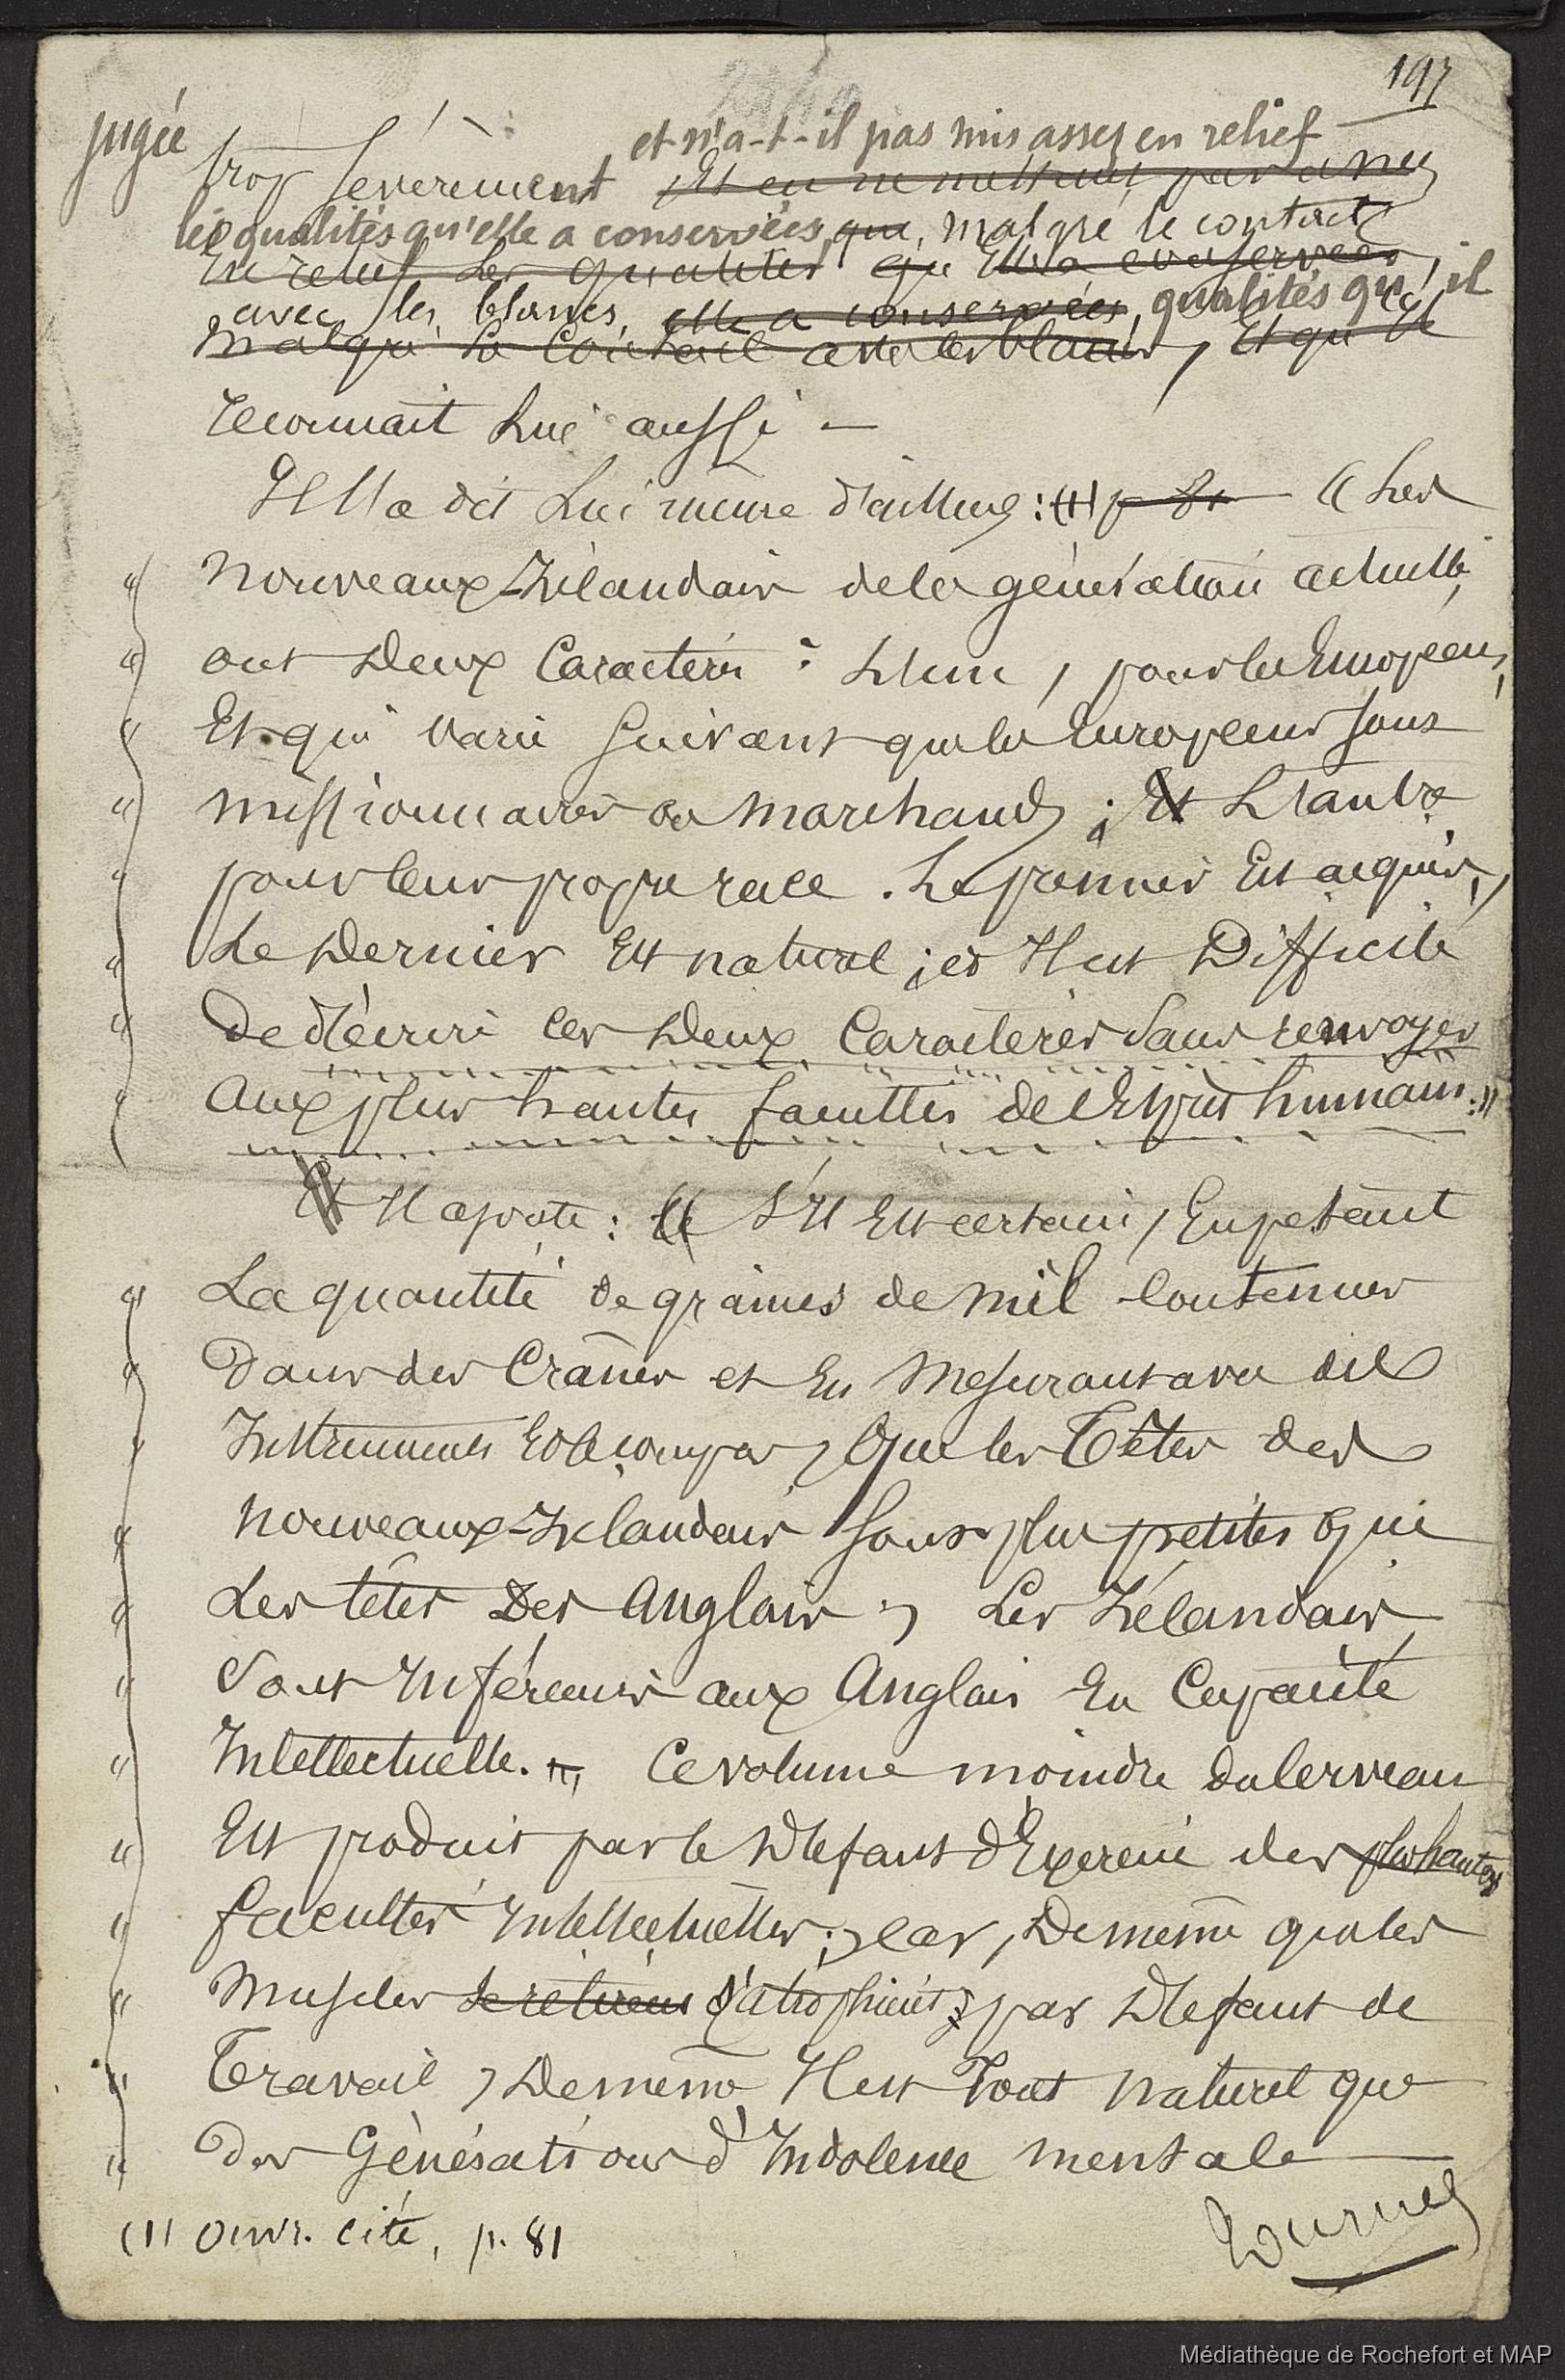 197
jugée
et n'a-t-il pas mis assez en relief
trop sévèrement, Et en ne mettant pas assez
les qualités qu'elle a conservées, que, malgré le contact
En relief les qualités qu'Elle a conservées,
avec les blancs, elle a conservées, qualités qu'il
malgré le contact avec les blancs, Et qu'Il
reconnait Lui aussi —
Il l'a dit Lui même d'ailleurs : (1) p 81 « Les
" nouveaux-Zélandais de la génération actuelle,
" ont Deux Caractères : L'un, pour les Européens,
" Et qui varie suivant que les Européens sont
" missionnaires ou marchands ; Et L'autre
" pour leur propre race. Le premier Est acquis,
" Le Dernier Est naturel ; et Il est Difficile
" De décrire ces Deux Caractères sans renvoyer
" aux plus hautes facultés de l'Esprit humain. »
Et Il ajoute : « S'Il Est certain, En pesant
" La quantité de graines de mil contenues
" Dans des Crânes et En Mesurant avec des
" Instruments Et le compas, Que les Têtes des
" nouveaux-Zélandais sont plus petites que
" Les têtes Des Anglais, Les Zélandais
" Sont Inférieurs aux Anglais En Capacité
" Intellectuelle. Ce volume moindre du cerveau
" Est produit par le Défaut d'Exercice des plus hautes
" facultés Intellectuelles ; car, De même que les
" Muscles se retirent s'atrophient par Défaut de
" Travail, De même Il est Tout naturel que
" Des Générations d'Indolence mentale
(1) Ouvr. cité, p. 81
Tournez